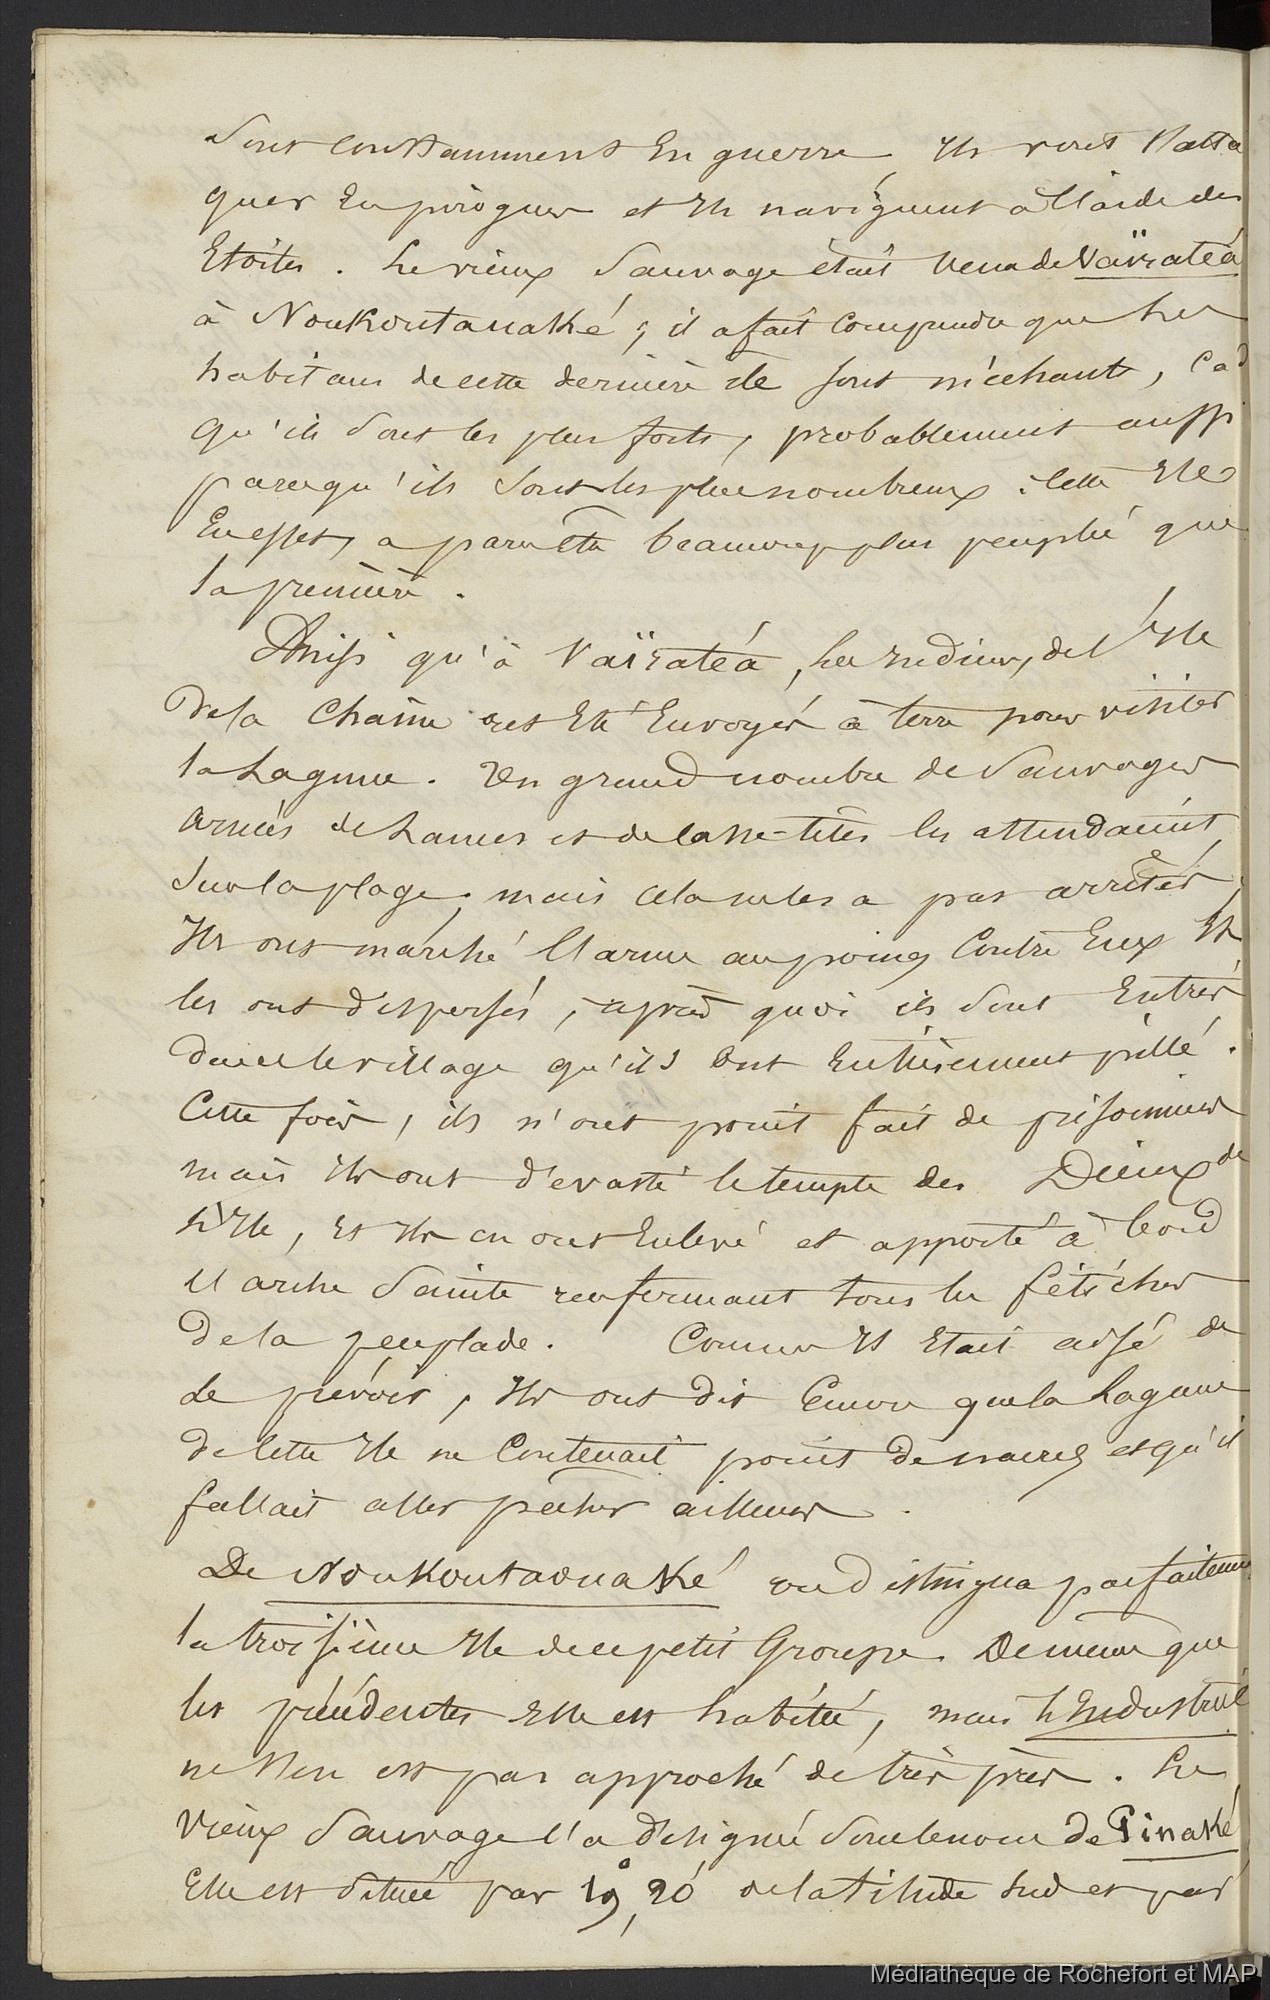 Sont constamment En guerre Ils vont s'atta
quer En pirogues et Ils naviguent à l'aide des
Etoiles. Le vieux Sauvage était venu de Vaïratéa
à NouKoutanaké ; il a fait comprendre que les
habitans de cette dernière île sont méchants, Càd
qu'ils Sont les plus forts, probablement aussi
parcequ'ils Sont les plus nombreux ; Cette Ile
En effet, a paru être beaucoup plus peuplé que
la première.
Ainsi qu'à Vaïratéa, les Indiens, de l'Ile
De la Chaîne ont Eté Envoyés à terre pour visiter
la Lagune. Un grand nombre de Sauvages
armés de Lances et de Casse-têtes les attendaient
Sur la plage, mais cela ne les a pas arrêtés,
Ils ont marché l'arme au poing Contre Eux Et
les ont dispersés, après quoi ils Sont Entrés
dans le village qu'ils ont Entièrement pillé.
Cette fois, ils n'ont point fait de prisonniers
mais Ils ont dévasté le temple des Dieux de
l'Ile, Et Ils en ont Enlevé et apporté à bord
l'arche Sainte renfermant tous les fétiches
De la peuplade. Comme Il Etait aisé de
le prévoir, Ils ont dit Encore que la Lagune
de Cette Ile ne Contenait point de nacres et qu'il
fallait aller pêcher ailleurs.
De NouKoutaouaKé on distingua parfaitement
la troisième Ile de ce petit Groupe. De même que
les précédentes Elle est habitée, mais l'Industriel
ne s'en est pas approché de très près. Le
vieux Sauvage l'a désigné Sous le nom de PinaKé
Elle est Située par 19°, 20' de latitude Sud et par
Médiathèque de Rochefort et MAP